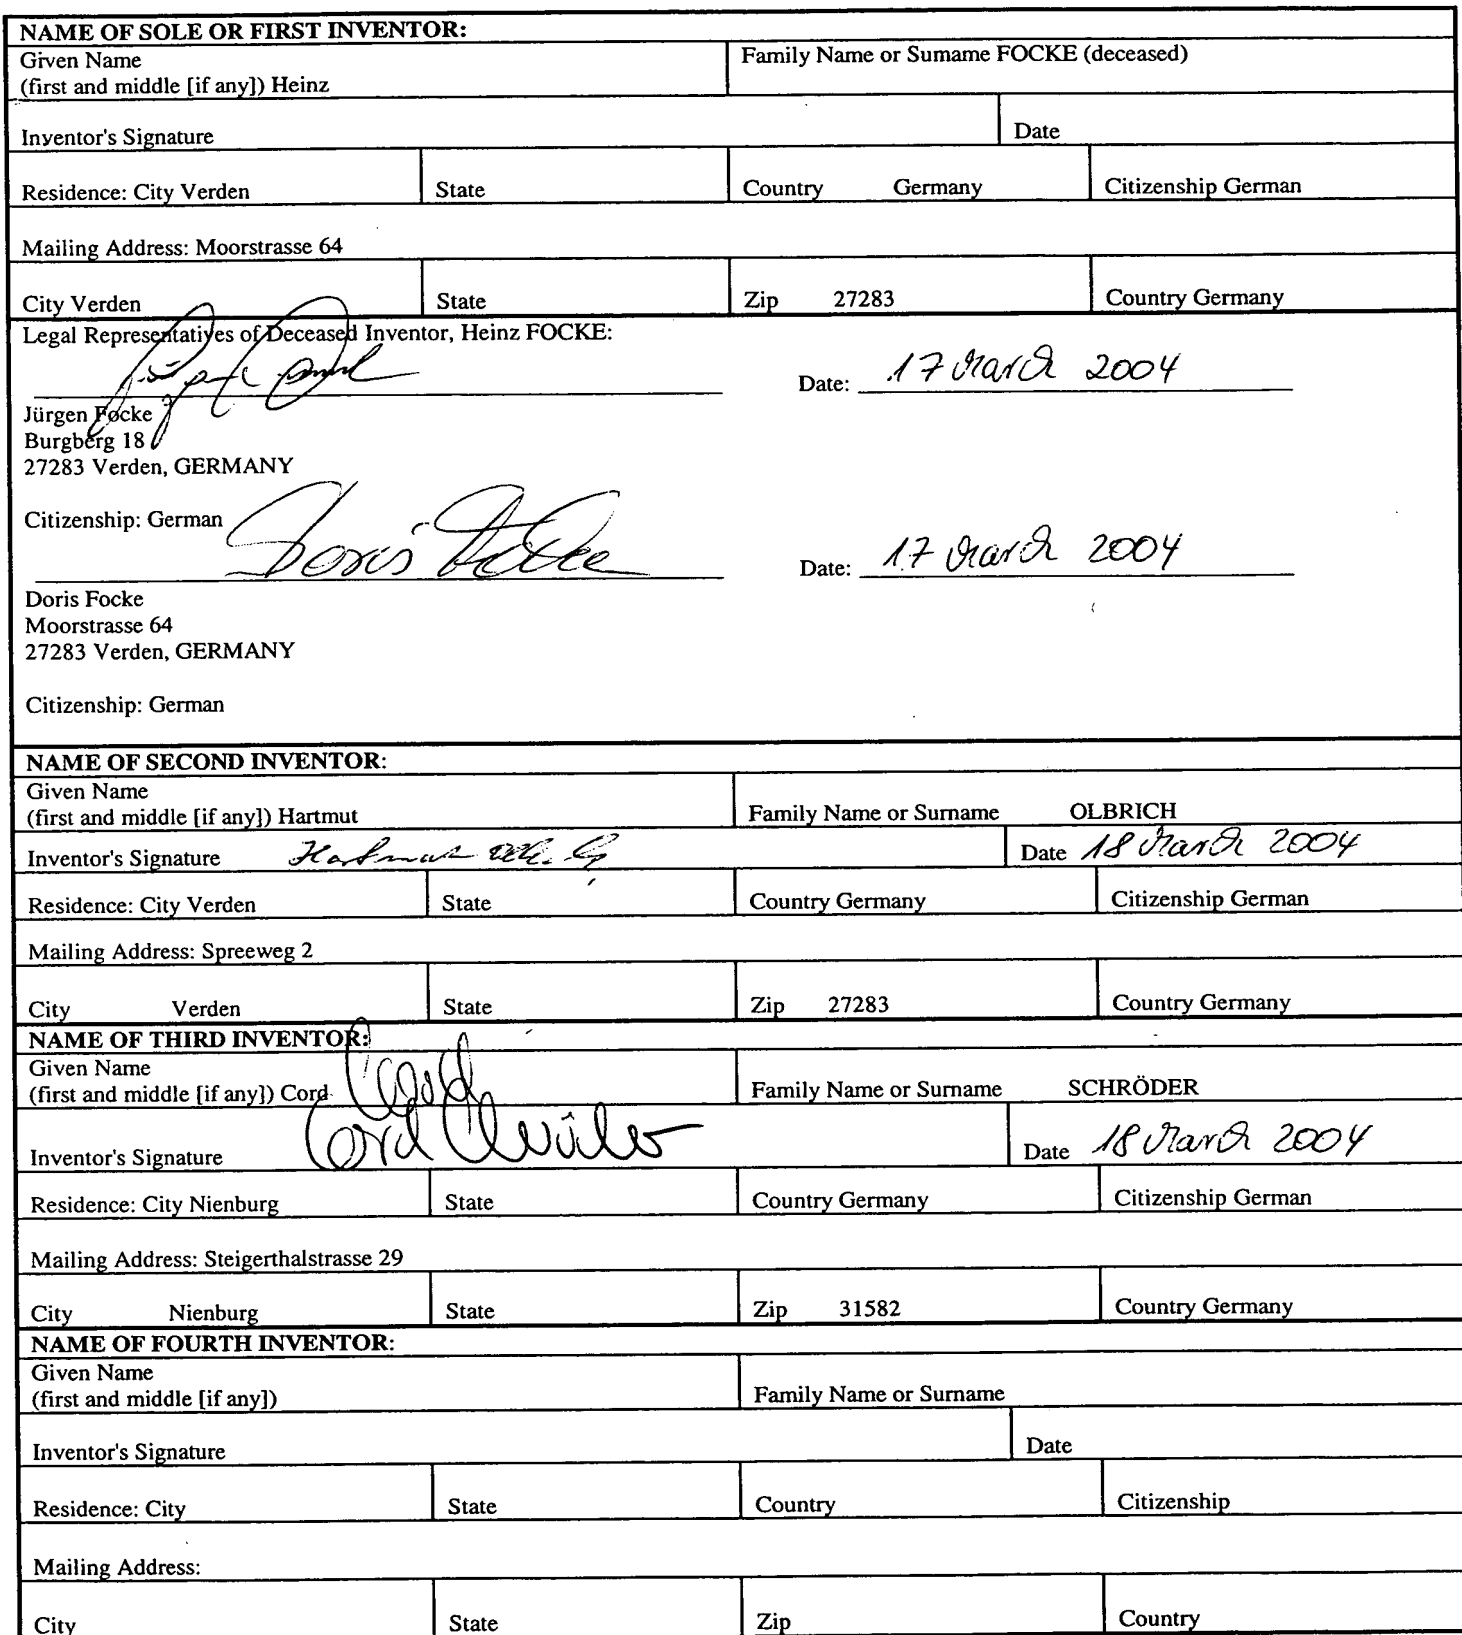 NAME OF SOLE OR FIRST INVENTOR:
Given Name
(first and middle [if any]) Heinz
Family Name or Surname FOCKE (deceased)
Inventor's Signature Date
Residence: City Verden State Country Germany Citizenship German
Mailing Address: Moorstrasse 64
City Verden State Zip 27283 Country Germany
Legal Representatives of Deceased Inventor, Heinz FOCKE:
Date: 17 March 2004
Jürgen Focke
Burgberg 18
27283 Verden, GERMANY
Citizenship: German
Doris Focke Date: 17 March 2004
Doris Focke
Moorstrasse 64
27283 Verden, GERMANY
Citizenship: German
NAME OF SECOND INVENTOR:
Given Name
(first and middle [if any]) Hartmut Family Name or Surname OLBRICH
Inventor's Signature Hartmut Olbrich Date 18 March 2004
Residence: City Verden State Country Germany Citizenship German
Mailing Address: Spreeweg 2
City Verden State Zip 27283 Country Germany
NAME OF THIRD INVENTOR:
Given Name
(first and middle [if any]) Cord Family Name or Surname SCHRÖDER
Inventor's Signature Cord Date 18 March 2004
Residence: City Nienburg State Country Germany Citizenship German
Mailing Address: Steigerthalstrasse 29
City Nienburg State Zip 31582 Country Germany
NAME OF FOURTH INVENTOR:
Given Name
(first and middle [if any]) Family Name or Surname
Inventor's Signature Date
Residence: City State Country Citizenship
Mailing Address:
City State Zip Country